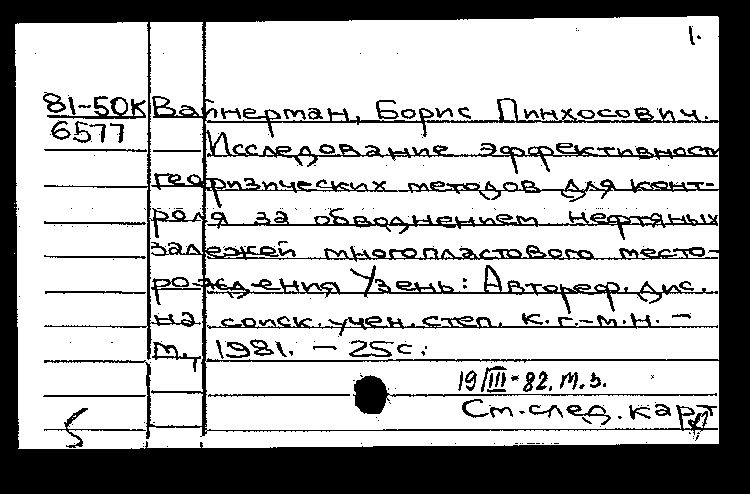 1.
81-50к Вайнерман, Борис Пинхосович.
6577
Исследование эффективност
геофизических методов для конт-
роля за обводнением нефтяных
залежей многопластового место-
рождения Узень: Автореф. дис.
на соиск. учен. степ. к. г.-м. н. -
М., 1981. - 25 с.:
19/III-82. М.З.
См. след. карт
5